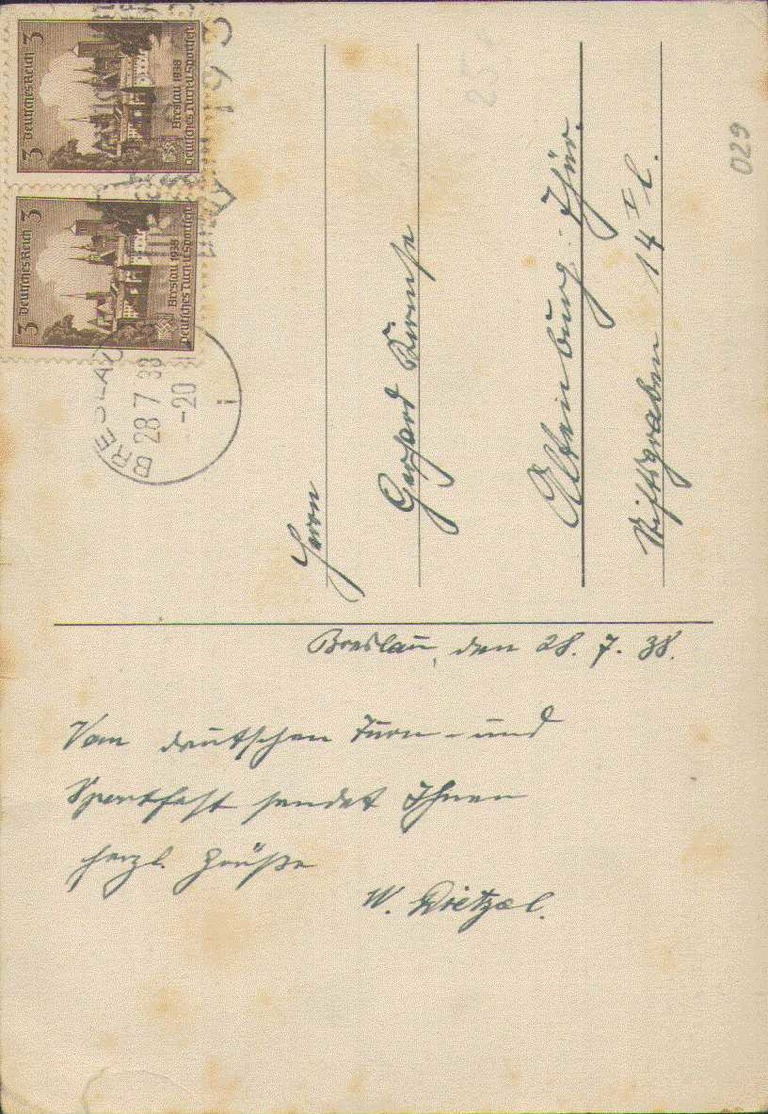 3 Deutsches Reich 3
Breslau 1938
Deutsches Turn-u.Sportfest
3 Deutsches Reich 3
Breslau 1938
Deutsches Turn-u.Sportfest
BRESLAU
28 7 38
-20
i
Herrn
Gerhard
Altenburg. Thür.
Stiftsgraben 14 I l.
029
Breslau, den 28. 7. 38.
Vom deutschen Turn- und
Sportfest sendet Ihnen
herzl. Grüße
W. Dietzel.